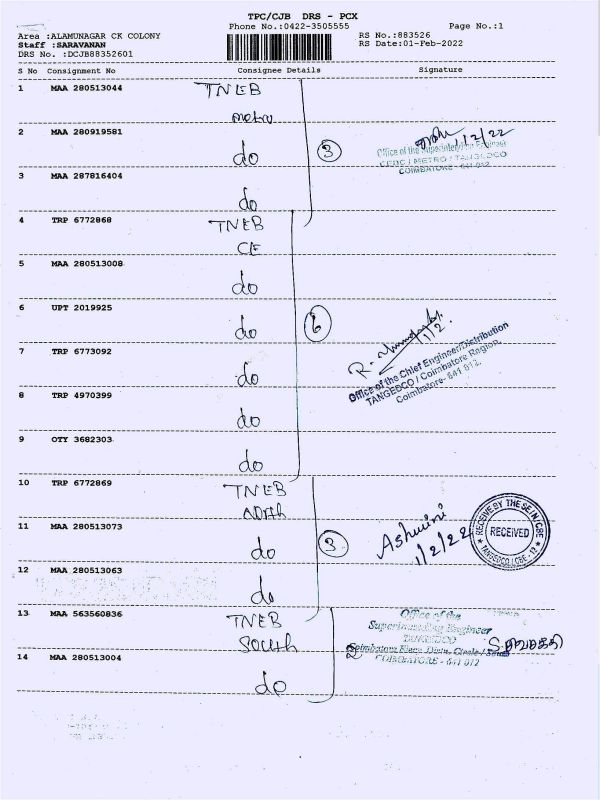 TPC/CJB DRS - PCX
Phone No.:0422-3505555 Page No.:1
Area :ALAMUNAGAR CK COLONY RS No.:883526
Staff :SARAVANAN RS Date:01-Feb-2022
DRS No. :DCJB88352601
S No Consignment No Consignee Details Signature
1 MAA 280513044 TNEB
metro
2 MAA 280919581 do
3
1/2/22
Office of the Superintending Engineer
CEDC / METRO / TANGEDCO
COIMBATORE - 641 012
3 MAA 287816404 do
4 TRP 6772868 TNEB
CE
5 MAA 280513008 do
6 UPT 2019925 do
6
7 TRP 6773092 do
1/2.
Office of the Chief Engineer/Distribution
TANGEDCO / Coimbatore Region,
Coimbatore- 641 012.
8 TRP 4970399 do
9 OTY 3682303 do
10 TRP 6772869 TNEB
North
11 MAA 280513073 do
3
Ashwini
1/2/22
RECEIVE BY THE SE/N/CBE
RECEIVED
TANGEDCO / CBE - 12
12 MAA 280513063 do
13 MAA 563560836 TNEB
South
2
Office of the
Superintending Engineer
TANGEDCO
Coimbatore Elecy. Distn. Circle / South
COIMBATORE - 641 012
14 MAA 280513004 do